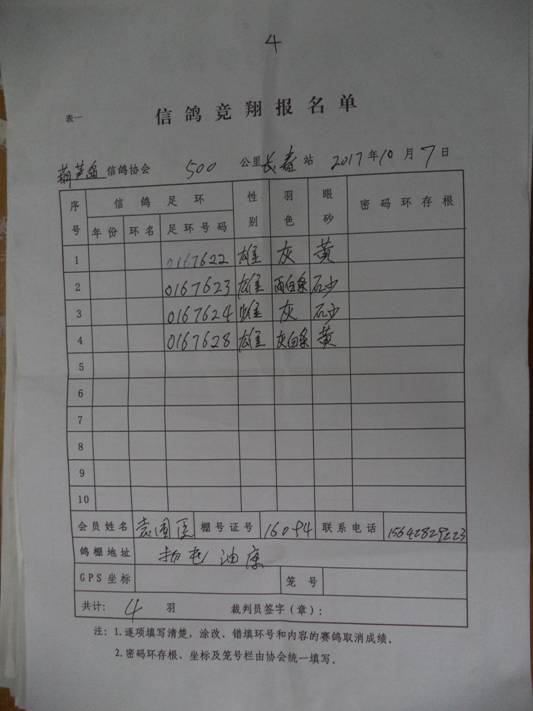 4
表一
信鸽竞翔报名单
葫芦岛信鸽协会 500 公里长春站 2017年10月7日
序号 信鸽足环 性别 羽色 眼砂 密码环存根
年份 环名 足环号码
1 0167622 雄 灰 黄
2 0167623 雄 雨白条 砂
3 0167624 雌 灰 砂
4 0167628 雄 灰白条 黄
5
6
7
8
9
10
会员姓名 袁国医 棚号证号 16094 联系电话 15642829223
鸽棚地址 油库
GPS坐标 笼号
共计: 4 羽 裁判员签字(章):
注: 1.逐项填写清楚,涂改、错填环号和内容的赛鸽取消成绩。
2.密码环存根、坐标及笼号栏由协会统一填写。